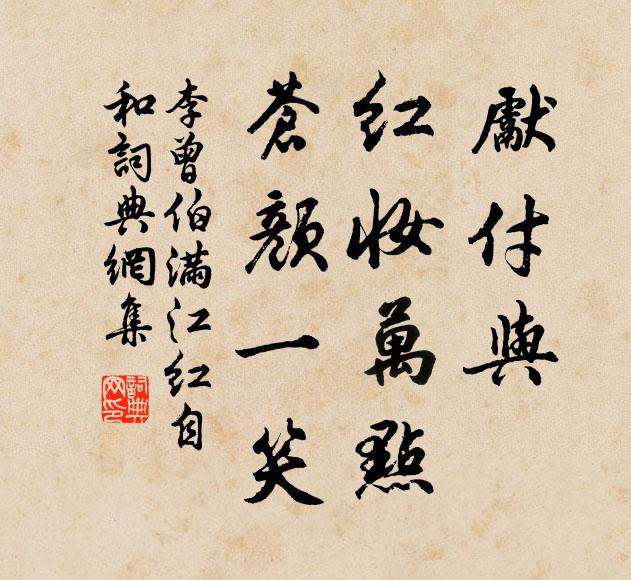 獻付與
紅妝萬點
蒼顏一笑
李曾伯滿江紅自
和詞典網集
詞典
网印